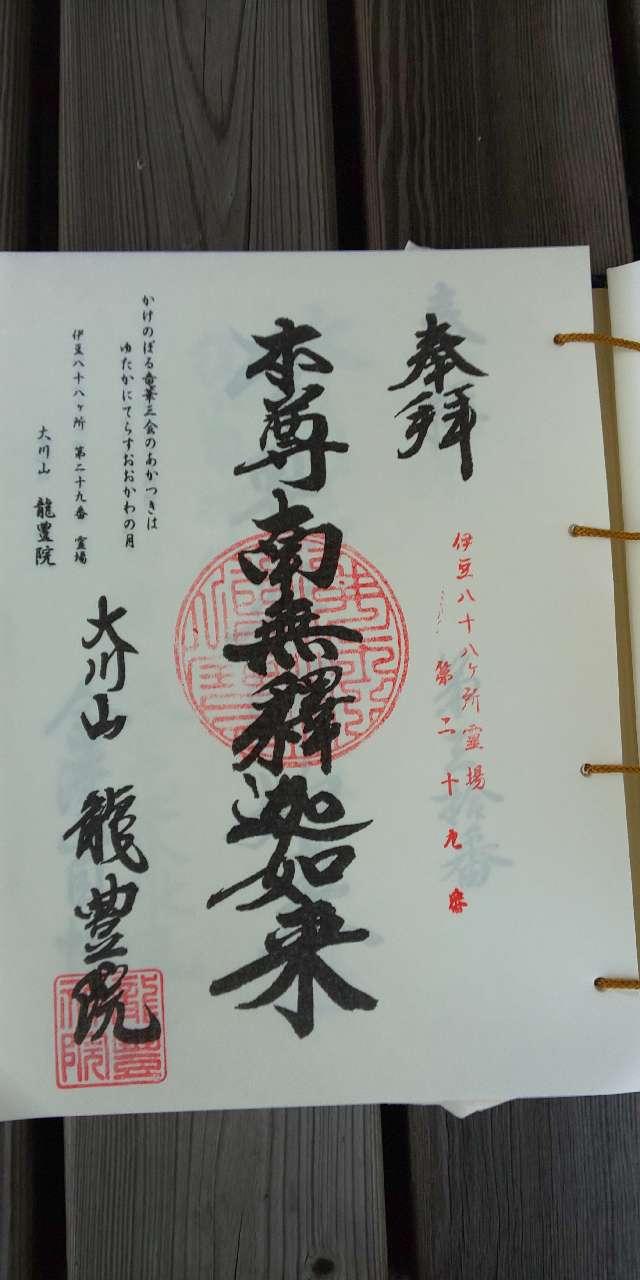 奉拝
伊豆八十八ヶ所霊場
第二十九番
本尊南無釋迦如来
かけのぼる竜華三会のあかつきは
ゆたかにてらすおおかわの月
伊豆八十八ヶ所 第二十九番 霊場
大川山 龍豊院
大川山 龍豊院